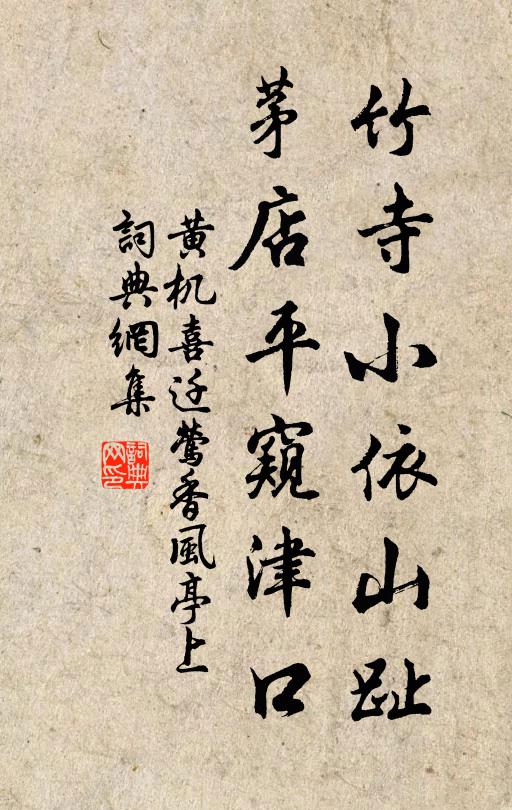 竹寺小依山趾
茅店平窺津口
黄机喜迁鶯香風亭上
詞典網集
詞典
网印